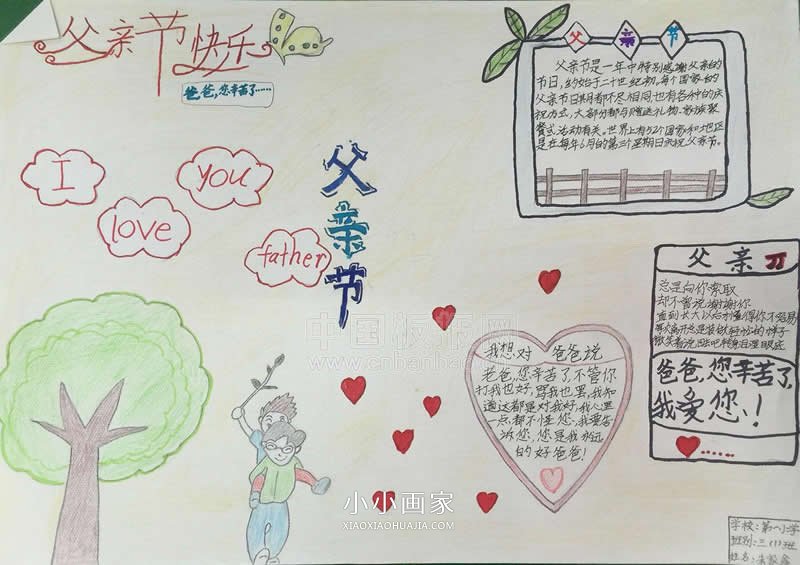 父亲节快乐
爸爸,您辛苦了……
I
love
you
father
父亲节
父亲节
父亲节是一年中特别感谢父亲的
节日,约始于二十世纪初,每个国家的
父亲节日期都不尽相同,也有各种的庆
祝方式,大部分都与赠送礼物、家族聚
餐或活动有关。世界上有52个国家和地区
是在每年6月的第三个星期日庆祝父亲节。
父亲
总是向你索取
却不曾说谢谢你
直到长大以后才懂得你不容易
爸爸,您辛苦了,
我爱您!
……
我想对 爸爸说
老爸,您辛苦了,不管你
打我也好,骂我也罢,我知
道这都是对我好,我心里
一点都不怪您,我要告
诉您,您是我永远
的好爸爸!
中国板报网
小小画家
XIAOXIAOHUAJIA.COM
学校:第一小学
班别:三(1)班
姓名:朱